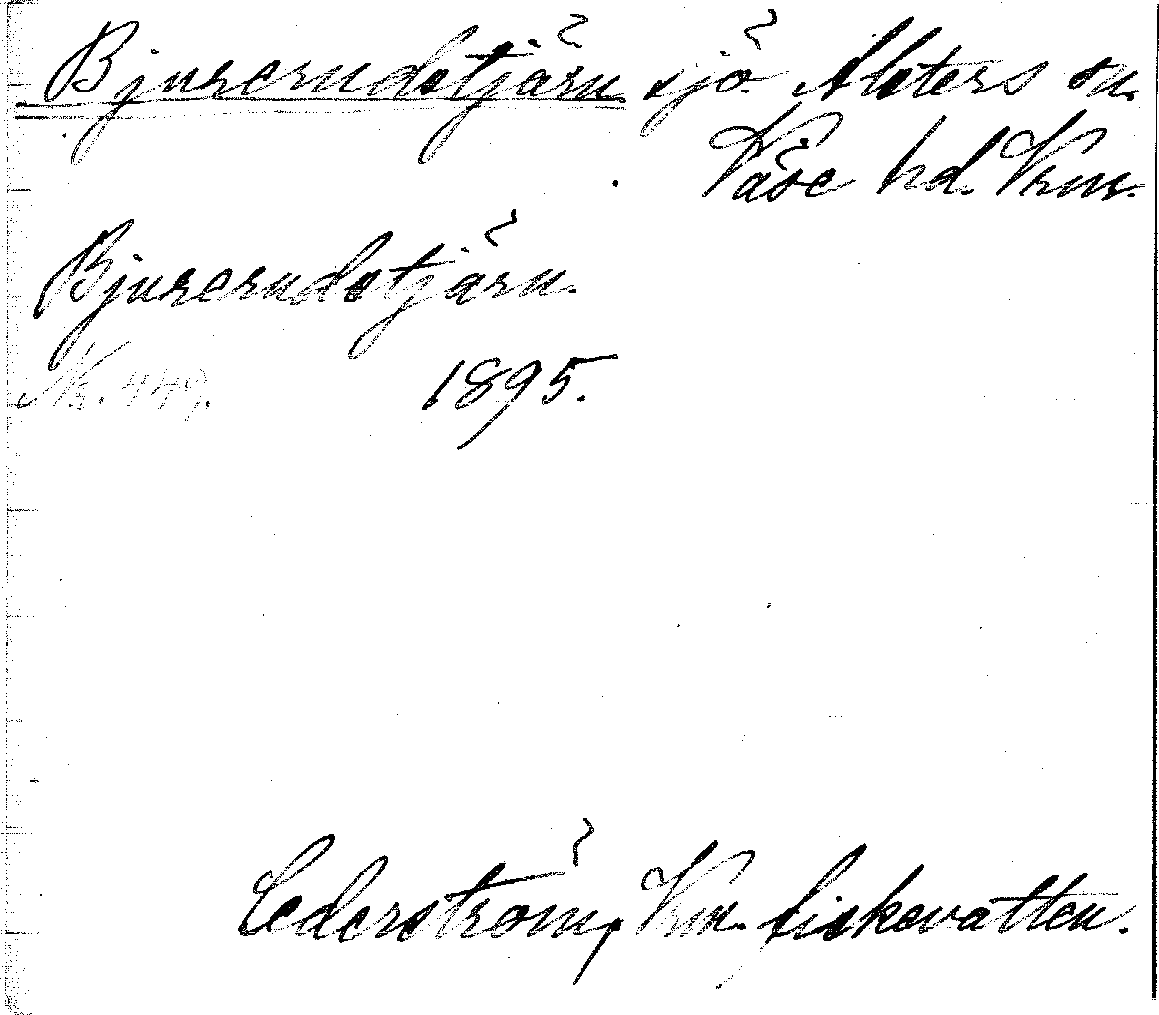 Bjurerudstjärn sjö Alsters sn.
Väse hd. Vrm.
Bjurerudstjärn.
Nr. 449. 1895.
Cederström, Vrm. fiskevatten.